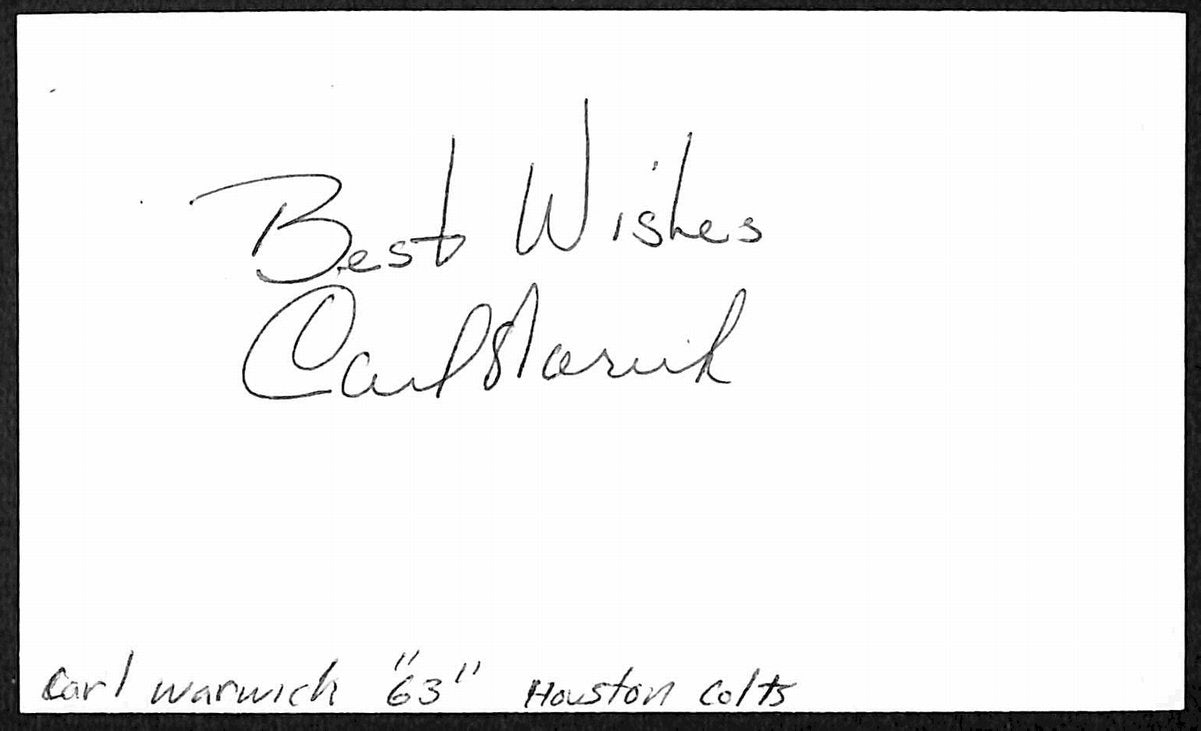 Best Wishes
Carl Warwick
Carl Warwick "63" Houston Colts